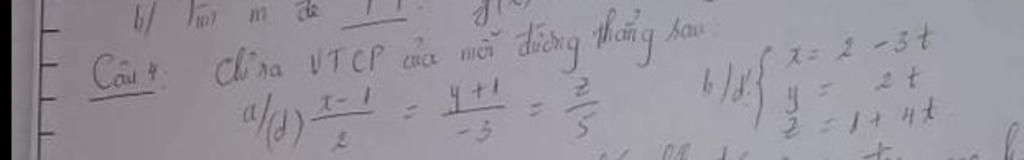 b/ Tìm m để
Câu 4: Chỉ ra VTCP của mỗi đường thẳng sau
a/(d) \frac{x-1}{2} = \frac{y+1}{-3} = \frac{z}{5} b/d: { x = 2 - 3t
y = 2t
z = 1 + 4t